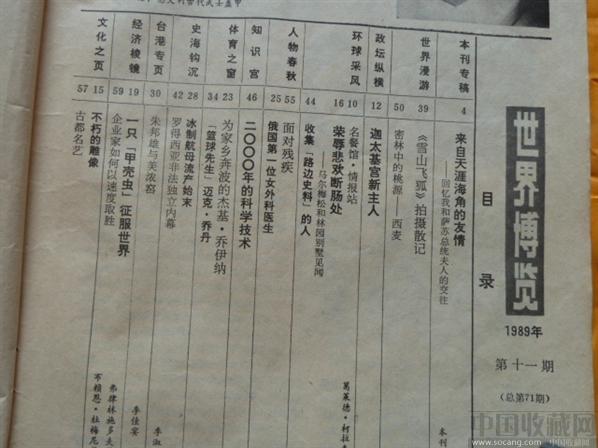 世界博览
1989年
第十一期
(总第71期)
目录
本刊专稿
4 来自天涯海角的友情
——回忆我和萨苏总统夫人的交往
本刊
世界漫游
39 《雪山飞狐》拍摄散记
50 密林中的桃源 西麦
政坛纵横
12 迦太基宫新主人
环球采风
10 名餐馆·情报站
16 荣辱悲欢断肠处
——马尔梅松和林园别墅见闻
葛莱德·柯拉
44 收集「路边史料」的人
人物春秋
55 面对残疾
25 俄国第一位女外科医生
知识宫
46 二〇〇〇年的科学技术
体育之窗
23 为家乡奔波的杰基·乔伊纳
34 「篮球先生」迈克·乔丹
史海钩沉
28 冰制航母流产始末
42 罗得西亚非法独立内幕
台港专页
30 朱邦雄与美浓窑
李淑
经济棱镜
19 一只「甲壳虫」征服世界
李佳安
59 企业家如何以速度取胜
弗律林施多夫
文化之页
15 不朽的雕像
布赖恩·杜梅尼
57 古都名艺
中国收藏网
www.socang.com